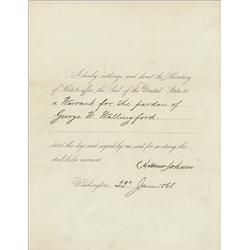 I hereby authorize and direct the Secretary
of State to affix the Seal of the United States to
a Warrant for the pardon of
George W. Wallingford.
dated this day and signed by me, and for so doing this
shall be his warrant.
Andrew Johnson
Washington, 22d June 1865.